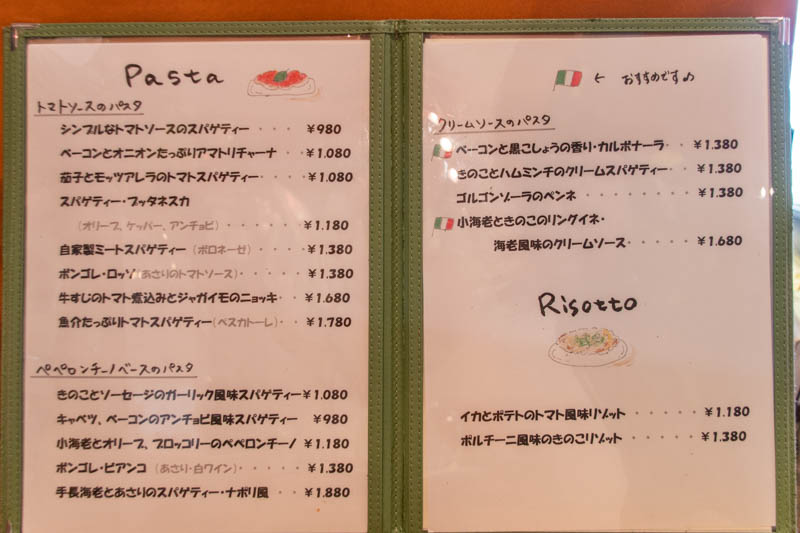 Pasta
トマトソースのパスタ
シンプルなトマトソースのスパゲティー・・・ ¥980
ベーコンとオニオンたっぷりアマトリチャーナ ・・¥1.080
茄子とモッツアレラのトマトスパゲティー・・・¥1.080
スパゲティー・プッタネスカ
(オリーブ、ケッパー、アンチョビ)・・・・・・¥1.180
自家製ミートスパゲティー(ボロネーゼ)・・・¥1.380
ボンゴレ・ロッソ(あさりのトマトソース)・・・・¥1.380
牛すじのトマト煮込みとジャガイモのニョッキ・・¥1.680
魚介たっぷりトマトスパゲティー(ペスカトーレ)・・¥1.780
ペペロンチーノベースのパスタ
きのことソーセージのガーリック風味スパゲティー¥1.080
キャベツ、ベーコンのアンチョビ風味スパゲティー ¥980
小海老とオリーブ、ブロッコリーのペペロンチーノ ¥1.180
ボンゴレ・ビアンコ(あさり・白ワイン)・・・・・・¥1.380
手長海老とあさりのスパゲティー・ナポリ風 ・・¥1.880
← おすすめです♪
クリームソースのパスタ
ベーコンと黒こしょうの香り・カルボナーラ・・¥1.380
きのことハムミンチのクリームスパゲティー・・¥1.380
ゴルゴンゾーラのペンネ・・・・・・・・・¥1.380
小海老ときのこのリングイネ・
海老風味のクリームソース・・・・・¥1.680
Risotto
イカとポテトのトマト風味リゾット・・・・・¥1.180
ポルチーニ風味のきのこリゾット・・・・・¥1.380